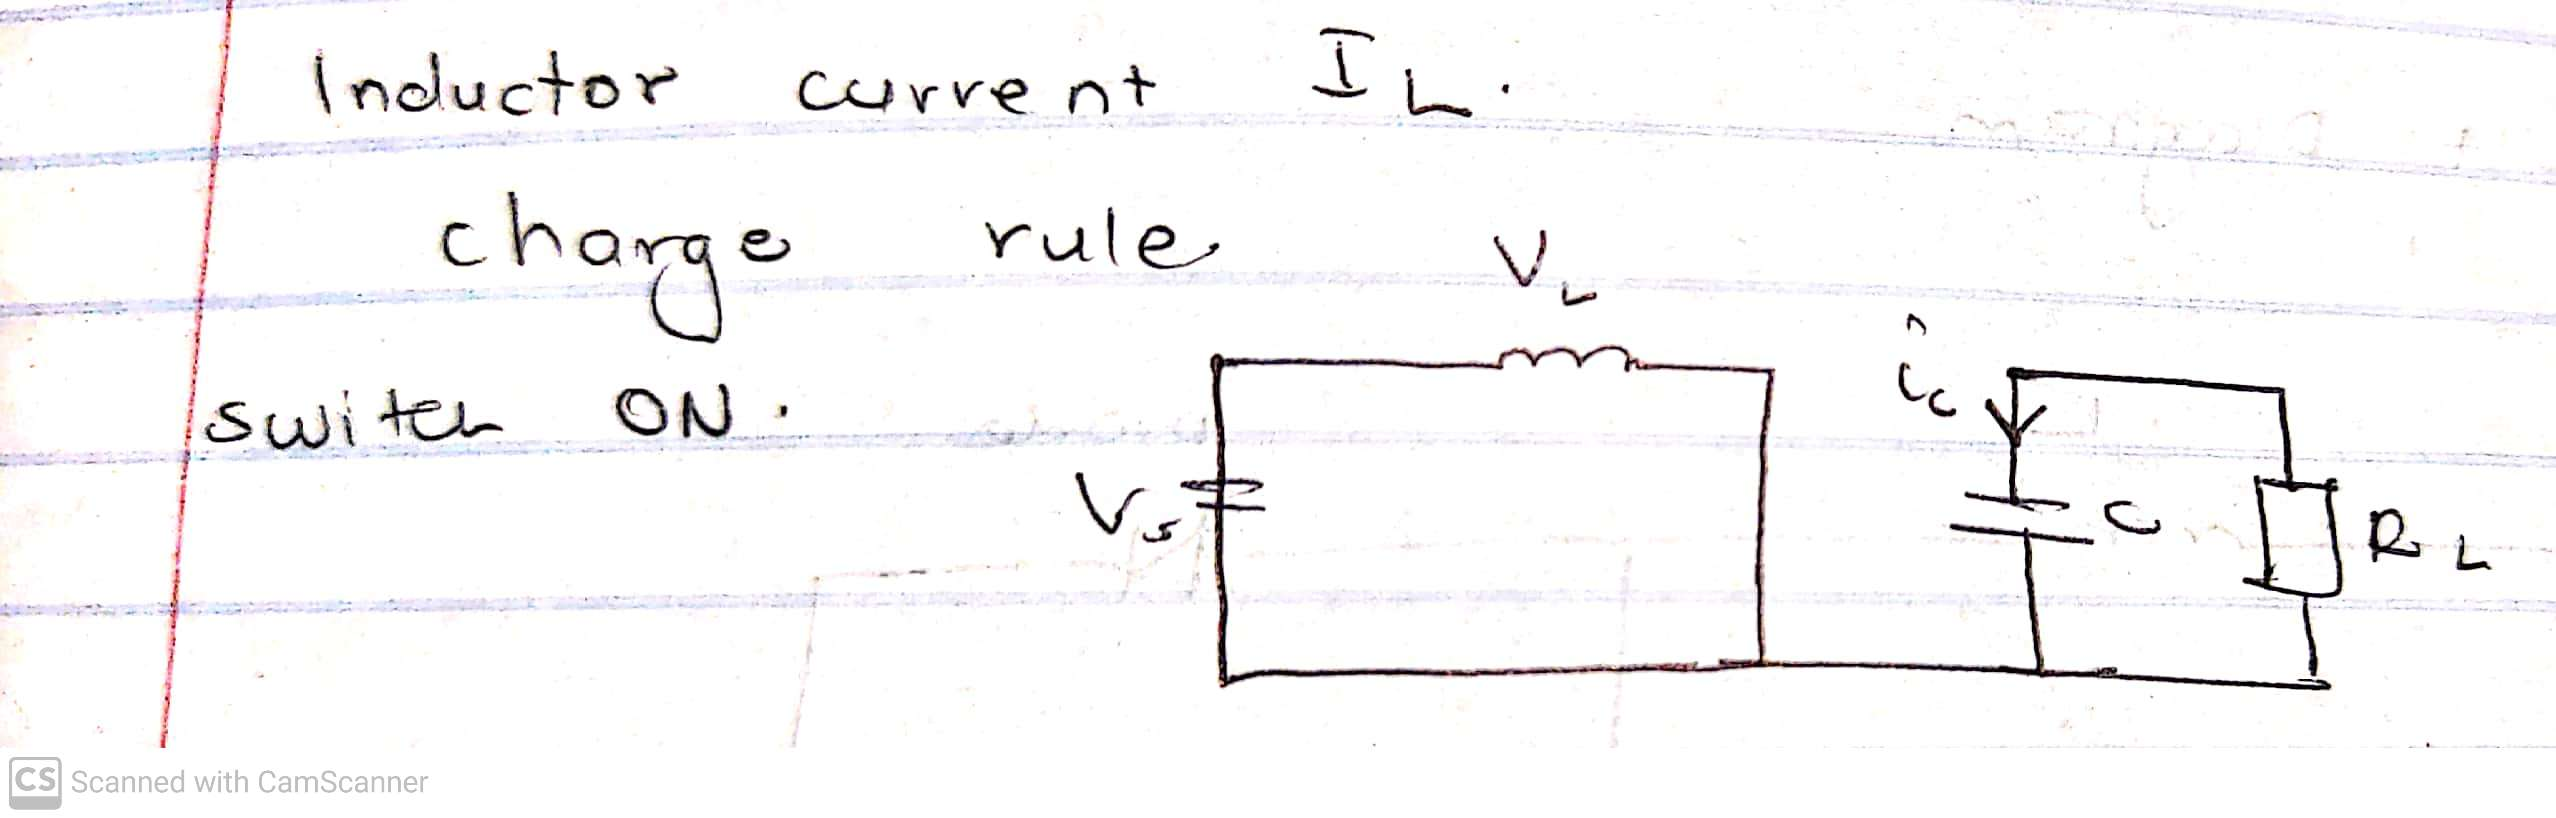 Inductor current IL.
charge rule
VL
ic
switch ON.
Vs
C
RL
CS Scanned with CamScanner